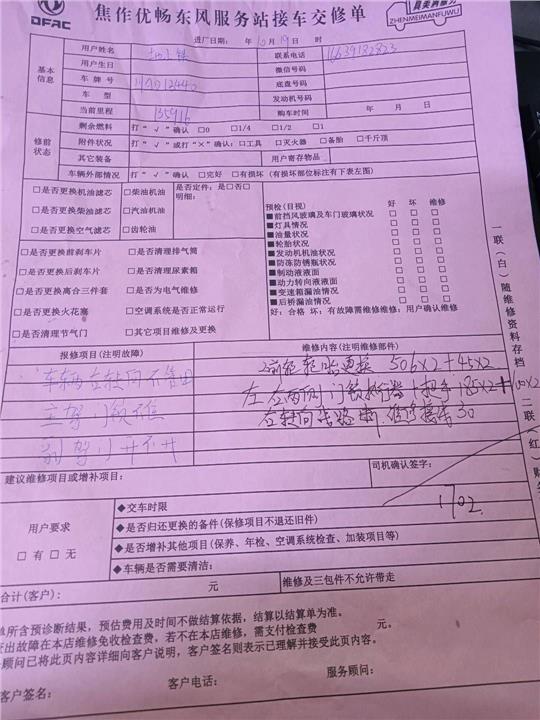 DFAC
焦作优畅东风服务站接车交修单
真美满服务
ZHENMEIMANFUWU
进厂日期： 年 10 月 19 日 时
基本信息
用户姓名
联系电话 16639182823
用户生日
微信号码
车 牌 号
底盘号码
车 型
发动机号码
当前里程 135916
购车时间 年 月 日
修前状态
剩余燃料 打“√”确认 □0 □1/4 □1/2 □1
附件状况 打“√”或打“×”确认：□工具 □灭火器 □备胎 □千斤顶
其它装备 用户寄存物品
车辆外部情况 打“√”确认 □完好 □有损坏（有损坏部位标注有下表左图）
□是否更换机油滤芯 □柴油机油 是否定件：是□否□
明细：
□是否更换柴油滤芯 □汽油机油
□是否更换空气滤芯 □齿轮油
□是否更换前刹车片 □是否清理排气筒
□是否更换后刹车片 □是否清理尿素箱
□是否更换离合三件套 □是否为电气维修
□是否更换火花塞 □空调系统是否正常运行
□是否清理节气门 □其它项目维修及更换
预检(目视) 好 坏 维修
■前挡风玻璃及车门玻璃状况 □ □ □
■灯具情况 □ □ □
■油量状况 □ □ □
■轮胎状况 □ □ □
■发动机机油状况 □ □ □
■防冻防锈瓶状况 □ □ □
■制动液液面 □ □ □
■动力转向液液面 □ □ □
■变速箱漏油情况 □ □ □
■后桥漏油情况 □ □ □
好：合格 坏：有故障需维修维修：用户确认维修
报修项目(注明故障)
维修内容(注明维修部件)
车辆右转向不管用
主驾门锁不住
副驾门开不开
2前轮轮胎更换 506×2+45×2
左右两侧门锁执行器+把手 185×2+100×2
右转向线路断.维修接 30
建议维修项目或增补项目：
司机确认签字：
1702
用户要求
□ 有 □ 无
◆交车时限
◆是否归还更换的备件(保修项目不退还旧件)
◆是否增补其他项目(保养、年检、空调系统检查、加装项目等)
◆车辆是否需要清洁：
合计(客户)： 元
维修及三包件不允许带走
单所含预诊断结果，预估费用及时间不做结算依据，结算以结算单为准。
查出故障在本店维修免收检查费，若不在本店维修，需支付检查费 元。
务顾问已将此页内容详细向客户说明，客户签名则表示已理解并接受此页内容。
客户签名： 客户电话： 服务顾问：
一联（白）随维修资料存档
二联（红）财